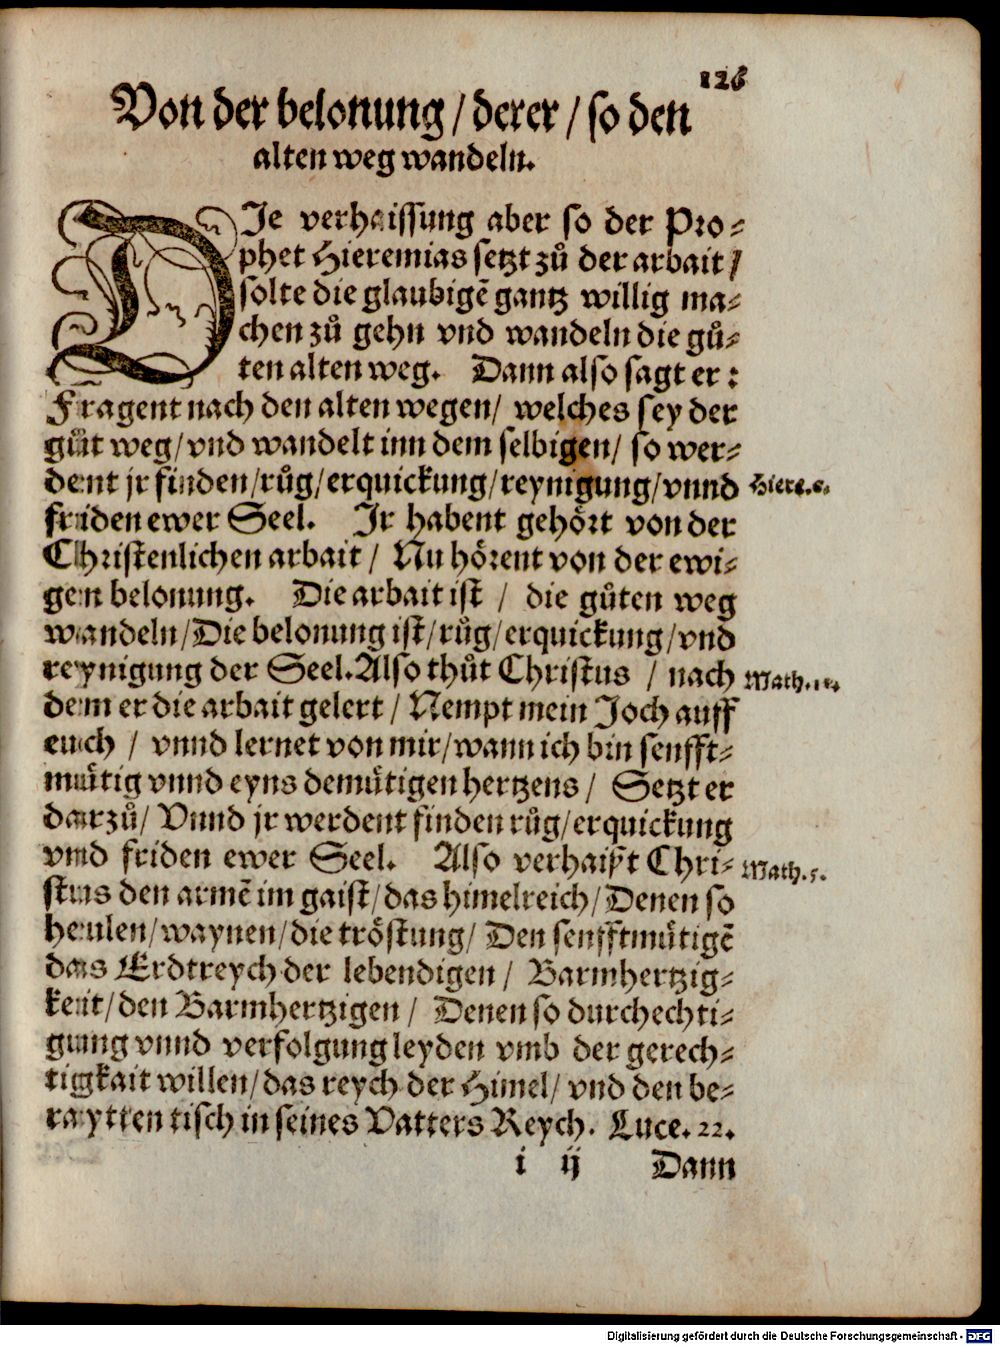 126
Von der belonung / derer / so den
alten weg wandeln.
DIe verhaissung aber so der Pro⸗
phet Hieremias setzt zů der arbait /
solte die glaubigẽ gantz willig ma⸗
chen zů gehn vnd wandeln die gů⸗
ten alten weg. Dann also sagt er:
Fragent nach den alten wegen/ welches sey der
gůt weg/vnd wandelt inn dem selbigen/ so wer⸗
dent jr finden/růg/erquickung/reynigung/vnnd
Hiere.6.
friden ewer Seel. Ir habent gehört von der
Christenlichen arbait / Nu hörent von der ewi⸗
gen belonung. Die arbait ist / die gůten weg
wandeln/Die belonung ist/růg/erquickung/vnd
reynigung der Seel.Also thůt Christus / nach
Math.11.
dem er die arbait gelert / Nempt mein Joch auff
euch / vnnd lernet von mir/wann ich bin senfft⸗
mütig vnnd eyns demütigen hertzens / Setzt er
darzů/ Vnnd jr werdent finden růg/erquickung
vnd friden ewer Seel. Also verhaißt Chri⸗
Math.5.
stus den armẽ im gaist/das himelreich/Denen so
heulen/waynen/die tröstung/ Den senfftmütigẽ
das Erdtreych der lebendigen / Barmhertzig⸗
keit/den Barmhertzigen / Denen so durchechti⸗
gung vnnd verfolgung leyden vmb der gerech⸗
tigkait willen/das reych der Himel/ vnd den be⸗
raytten tisch in seines Vatters Reych. Luce.22.
i ij Dann
Digitalisierung gefördert durch die Deutsche Forschungsgemeinschaft - DFG